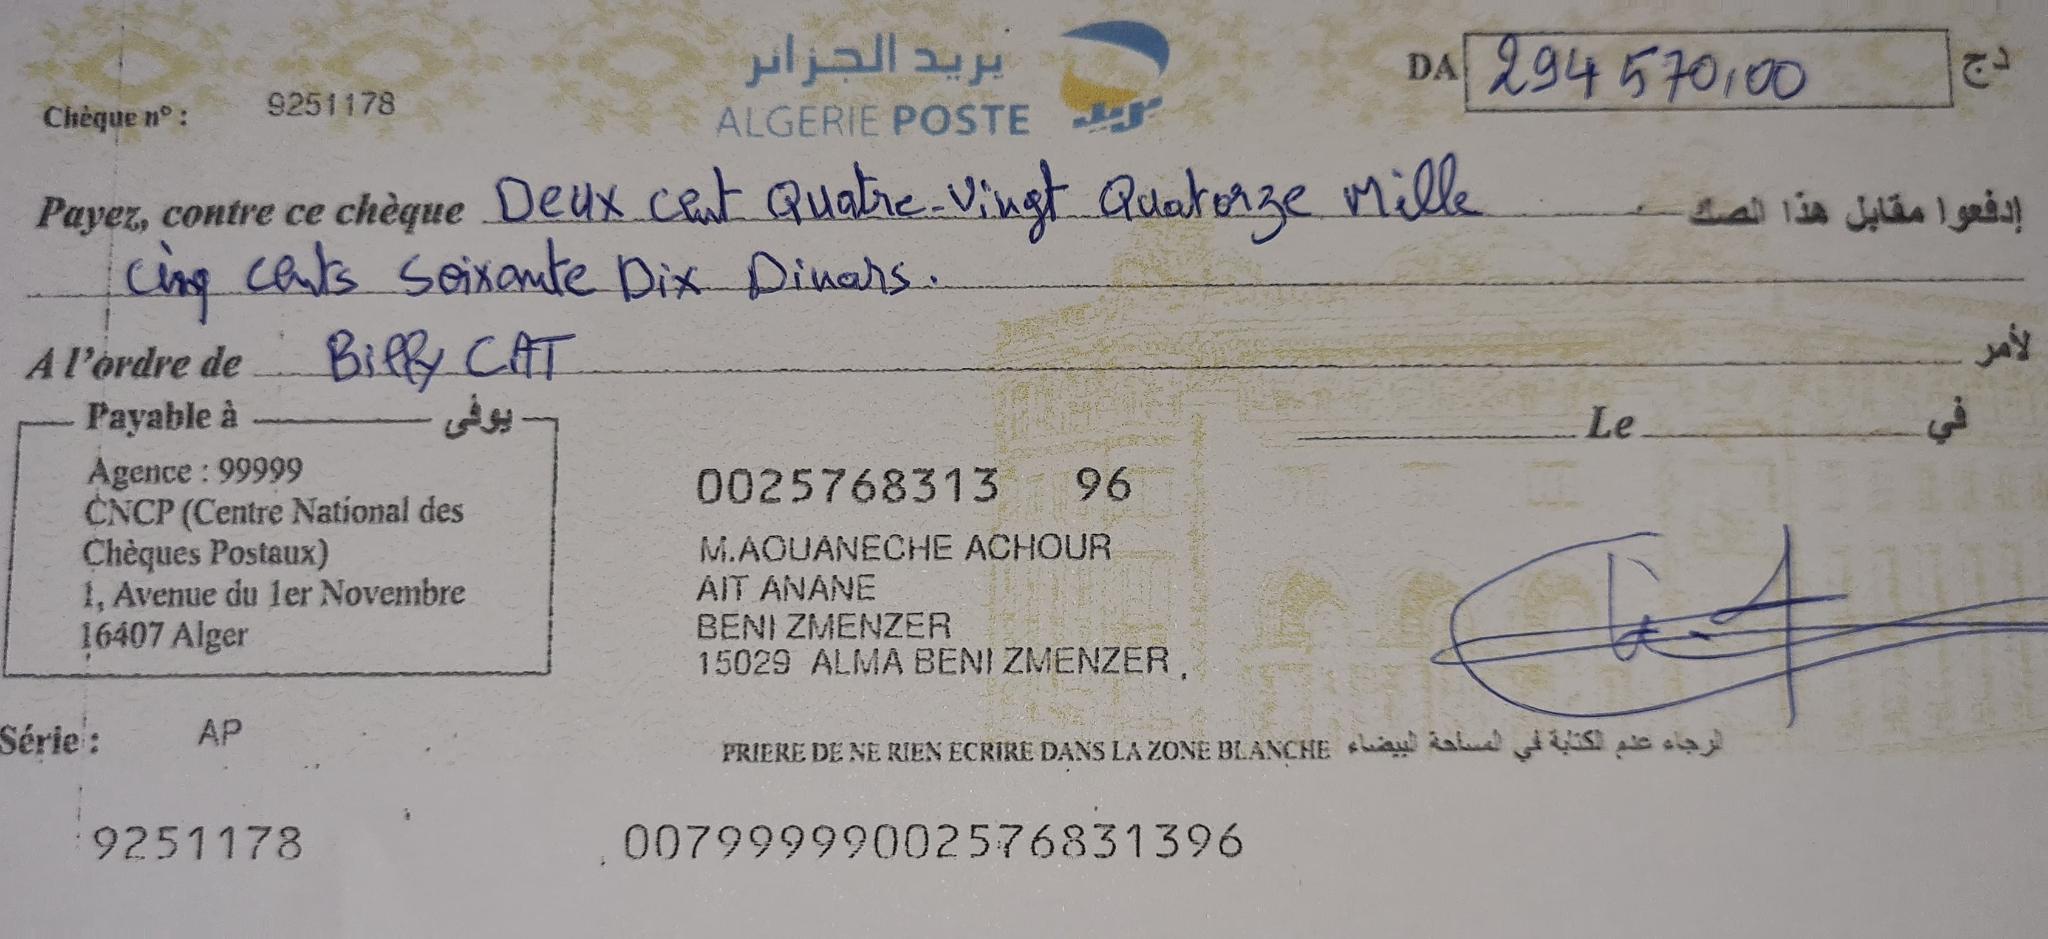 بريد الجزائر
ALGERIE POSTE
بريد
DA 294 570,00 دج
Chèque n° : 9251178
Payez, contre ce chèque Deux cent Quatre-Vingt Quatorze Mille إدفعوا مقابل هذا الصك
Cinq cents soixante Dix Dinars.
A l'ordre de Billy CAT لأمر
Payable à يوفى
Le في
Agence : 99999
CNCP (Centre National des
Chèques Postaux)
1, Avenue du 1er Novembre
16407 Alger
0025768313 96
M.AOUANECHE ACHOUR
AIT ANANE
BENI ZMENZER
15029 ALMA BENI ZMENZER
Série : AP
PRIERE DE NE RIEN ECRIRE DANS LA ZONE BLANCHE لرجاء عدم لكتابة في لمساحة لبيضاء
9251178 00799999002576831396